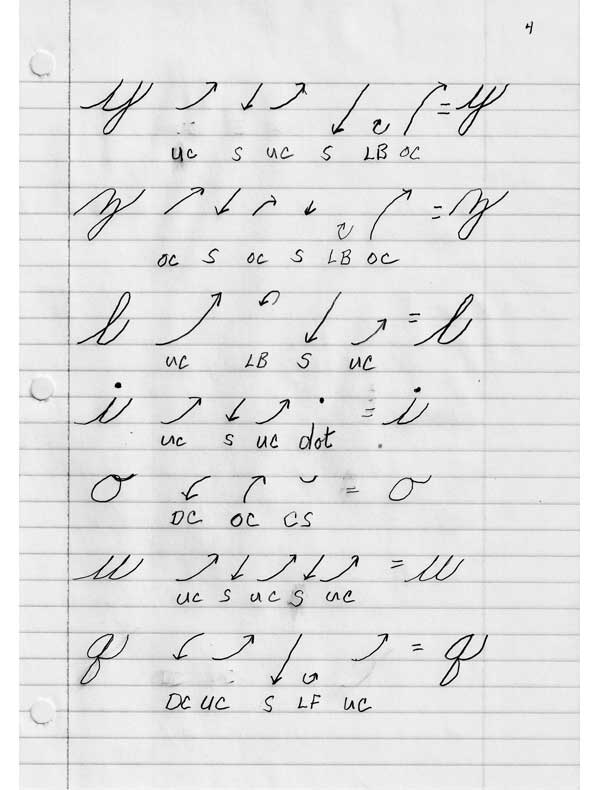 4
y = y
UC S UC S LB OC
z = z
OC S OC S LB OC
l = l
UC LB S UC
i = i
UC S UC dot
o = o
DC OC CS
u = u
UC S UC S UC
q = q
DC UC S LF UC